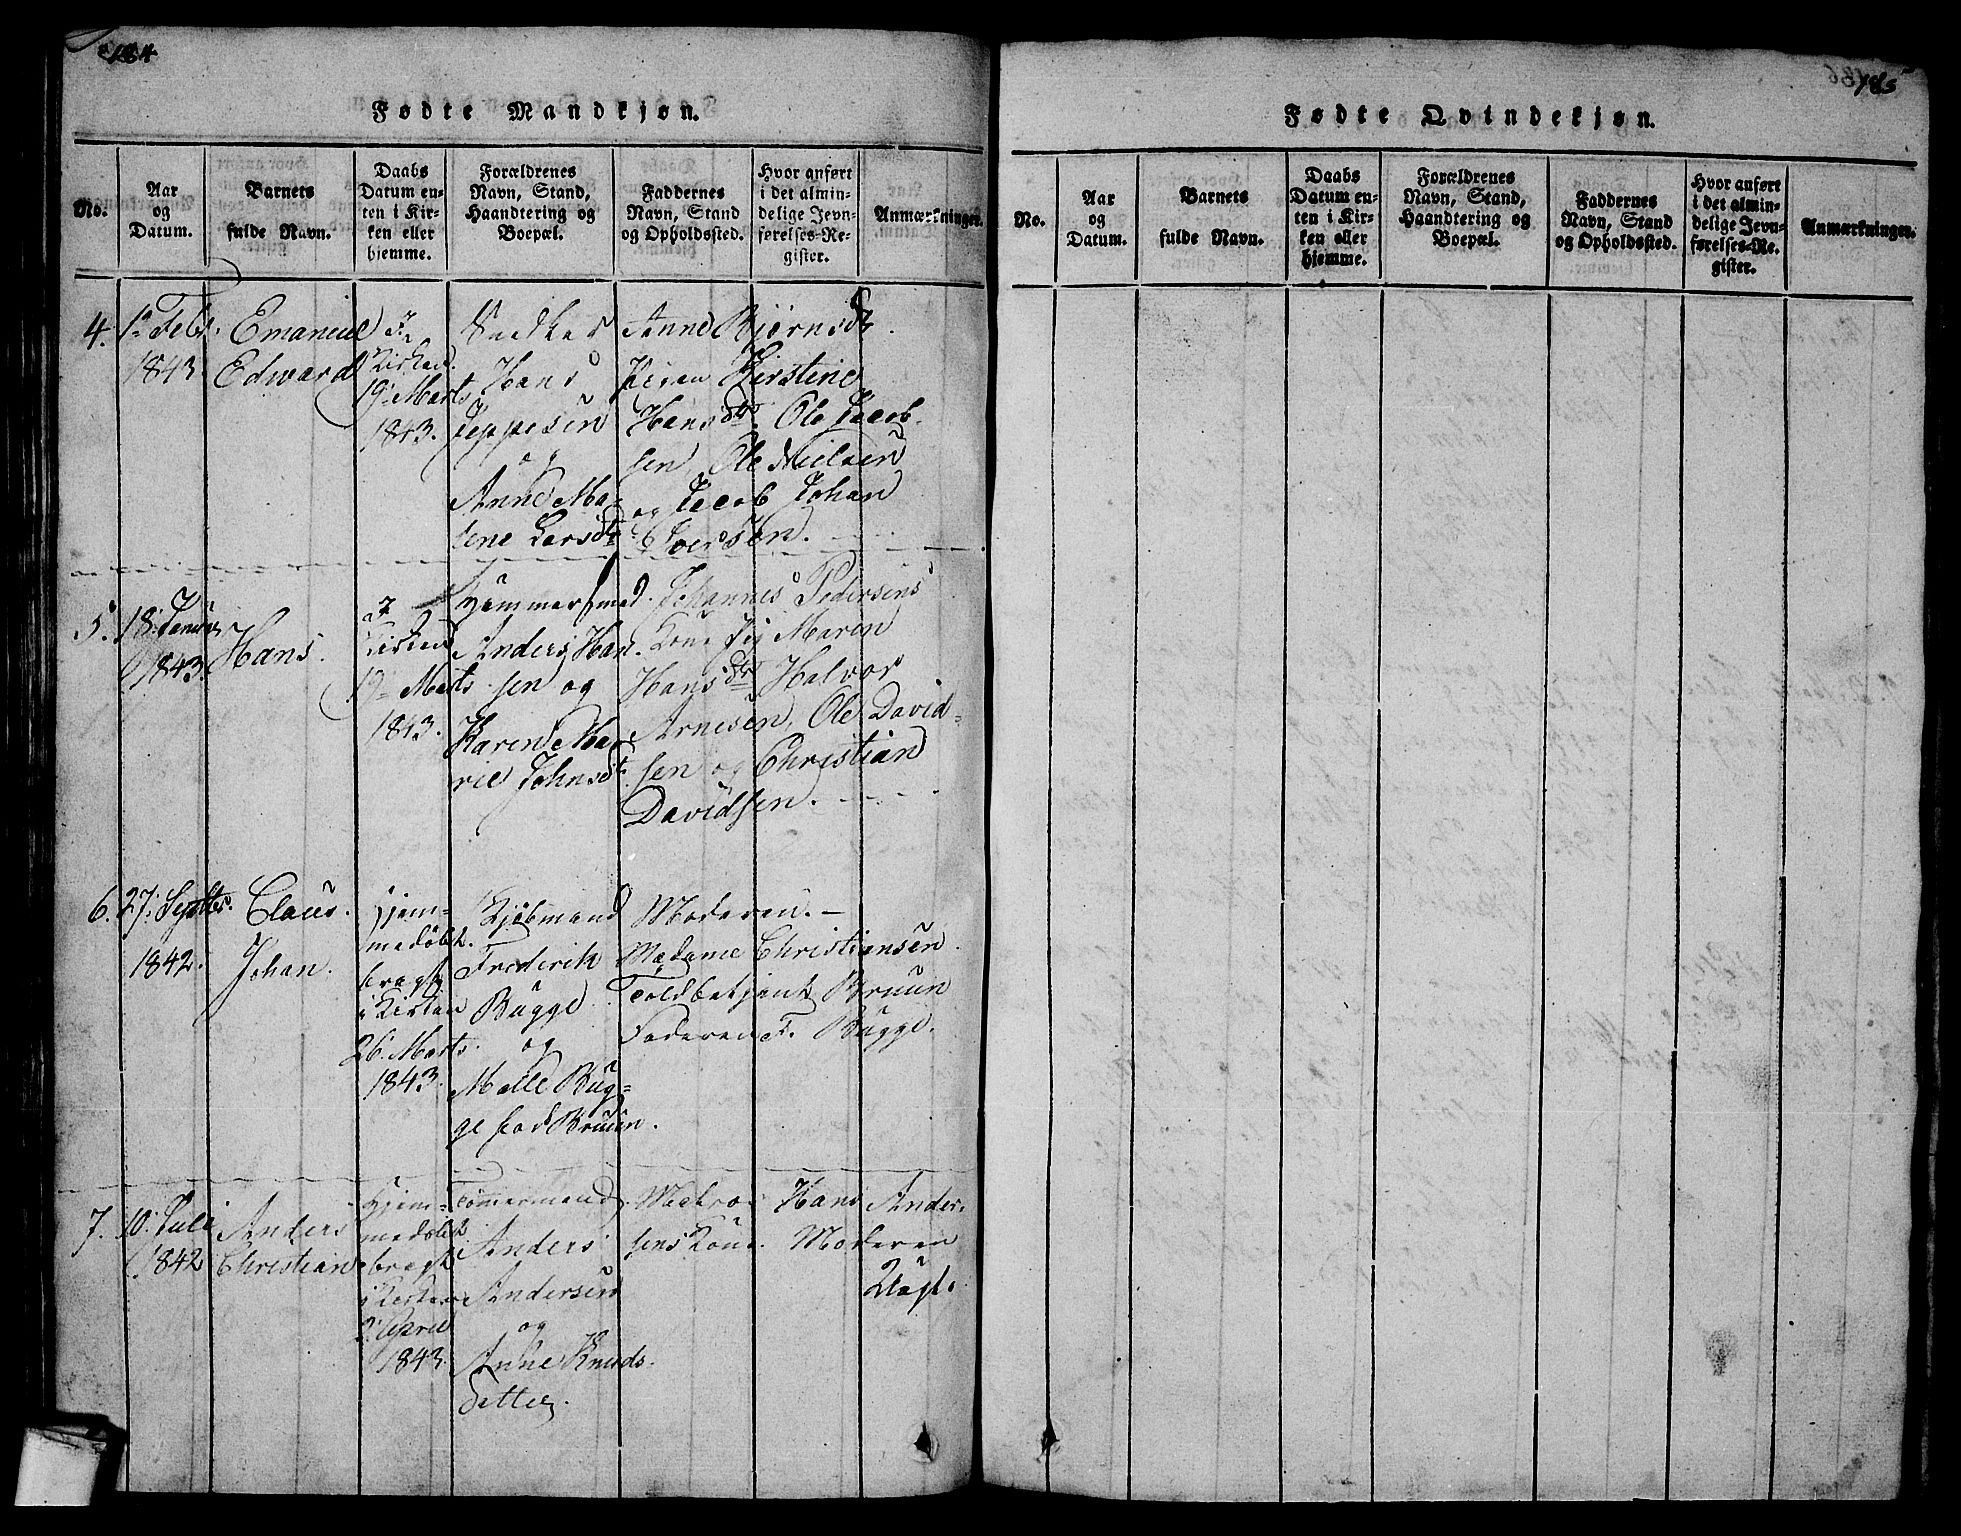 184
Fødte Mandkjøn.
No.
Aar
og
Datum.
Barnets
fulde Navn.
Daabs
Datum en-
ten i Kir-
ken eller
hjemme.
Forældrenes
Navn, Stand,
Haandtering og
Boepæl.
Faddernes
Navn, Stand
og Opholdssted.
Hvor anført
i det almin-
delige Jevn-
førelses-Re-
gister.
Anmærkninger.
4.
1. Febr.
1843.
Emanuel
Edward
Kirken
19. Marts
1843.
Snedker
Hans
Jeppesen
og
Anne Ma-
Larsdtr
Anne Biørnsdtr.
Kirstine
Hansdtr. Ole Jacob-
sen, Ole Nielsen
og Jacob Johan
Iversen.
5.
18. Januar
1843.
Hans.
Kirken
19. Marts
1843.
Hammersmed
Anders Han-
sen og
Karen Ma-
rie Johnsdtr.
Johannes Pedersens
Kone Maren
Hansdtr Halvor
Arnesen, Ole David-
sen og Christian
Davidsen.
6.
27. Septbr.
1842.
Claus
Johan.
Hjem-
medøbt.
bragt
i Kirken
26. Marts
1843.
Kjøbmand
Frederik
Bugge
og
Malle Bug-
ge født Bruun.
Moderen.
Madame Christiansen.
Toldbetjent Bruun
Faderen F. Bugge.
7.
10. Juli
1842
Anders
Christian
Hjem-
medøbt
bragt
i Kirken
2. April
1843.
Tømmermand
Anders
Andersen
og
Anne Knuds-
datter.
Matros Hans Ander-
sens Kone. Moderen
185
Fødte Qvindekjøn.
No.
Aar
og
Datum.
Barnets
fulde Navn.
Daabs
Datum en-
ten i Kir-
ken eller
hjemme.
Forældrenes
Navn, Stand,
Haandtering og
Boepæl.
Faddernes
Navn, Stand
og Opholdssted.
Hvor anført
i det almin-
delige Jevn-
førelses-Re-
gister.
Anmærkninger.